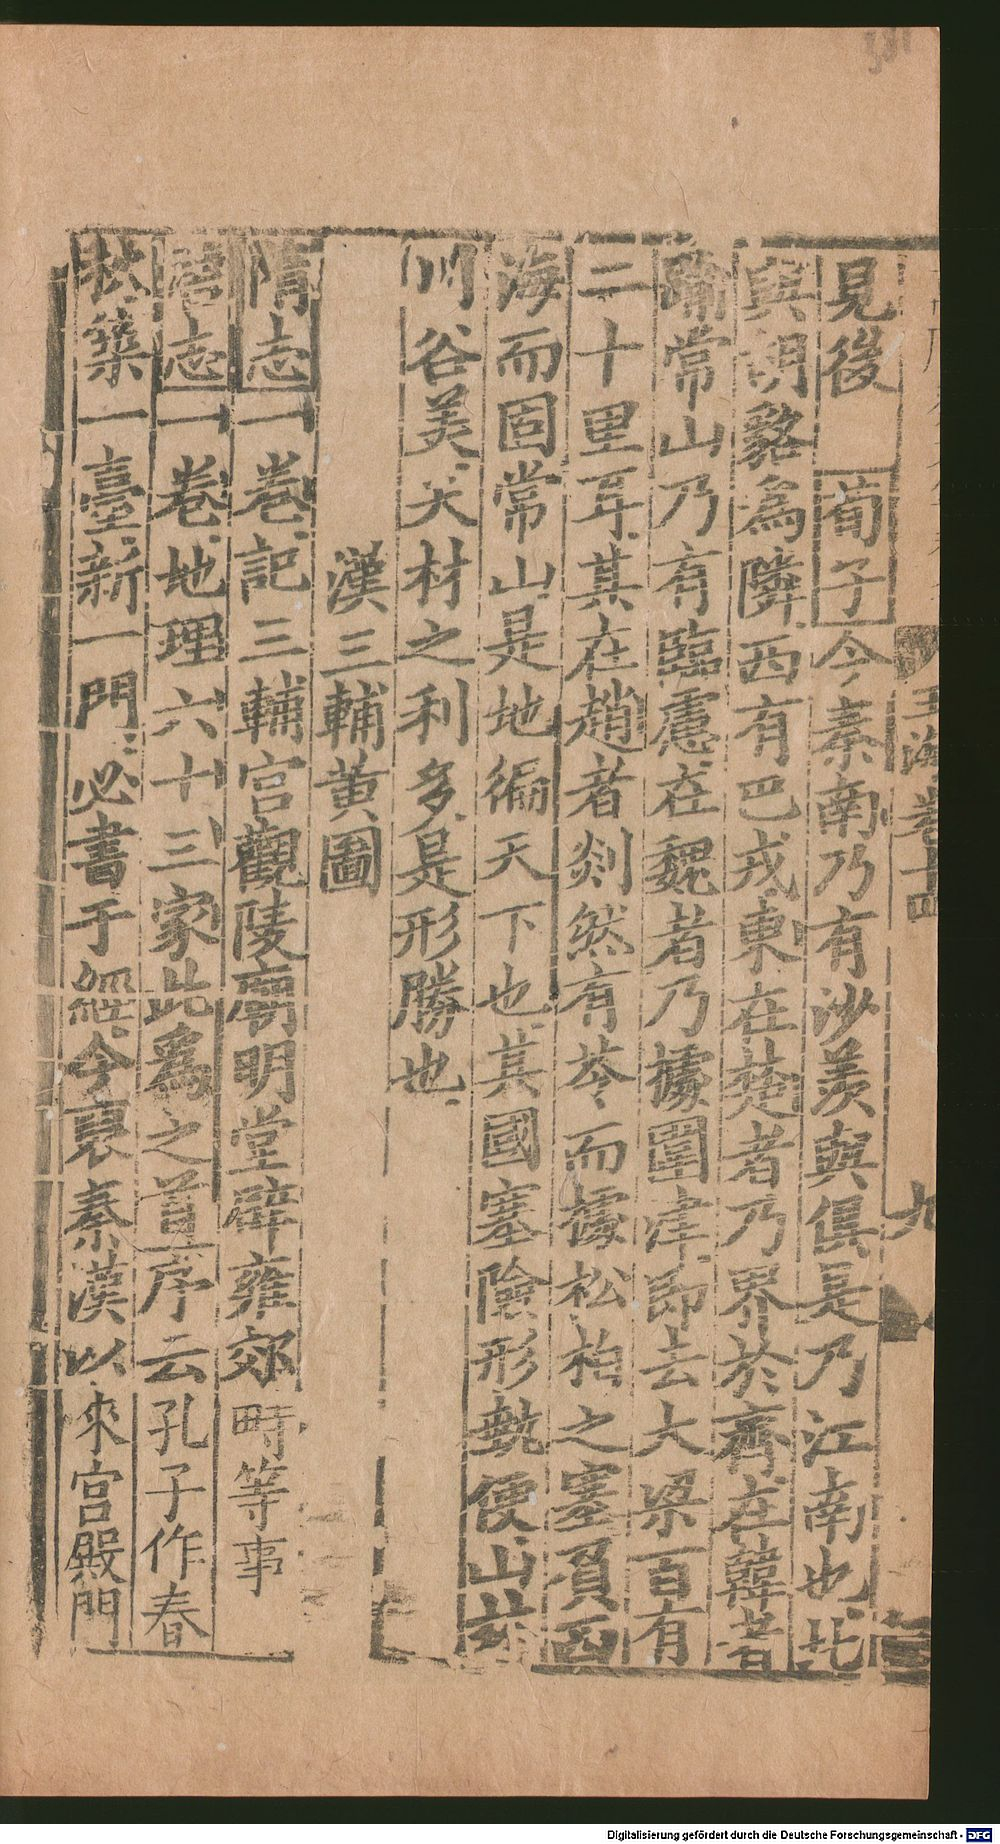 見後 荀子今秦南乃有沙羡與俱是乃江南也北
與胡貉為隣西有巴戎東在楚者乃界於齊在韓者
踰常山乃有臨慮在魏者乃據圍津即去大梁百有
二十里耳其在趙者剡然有苓而據松柏之塞負西
海而固常山是地徧天下也其國塞險形埶便山林
川谷美天材之利多是形勝也
漢三輔黄圖
隋志一卷記三輔宮觀陵廟明堂辟雍郊畤等事
唐志一卷地理六十三家此爲之首序云孔子作春
秋築一臺新一門必書于經今裒秦漢以來宮殿門
玉海卷十四
九
Digitalisierung gefördert durch die Deutsche Forschungsgemeinschaft - DFG